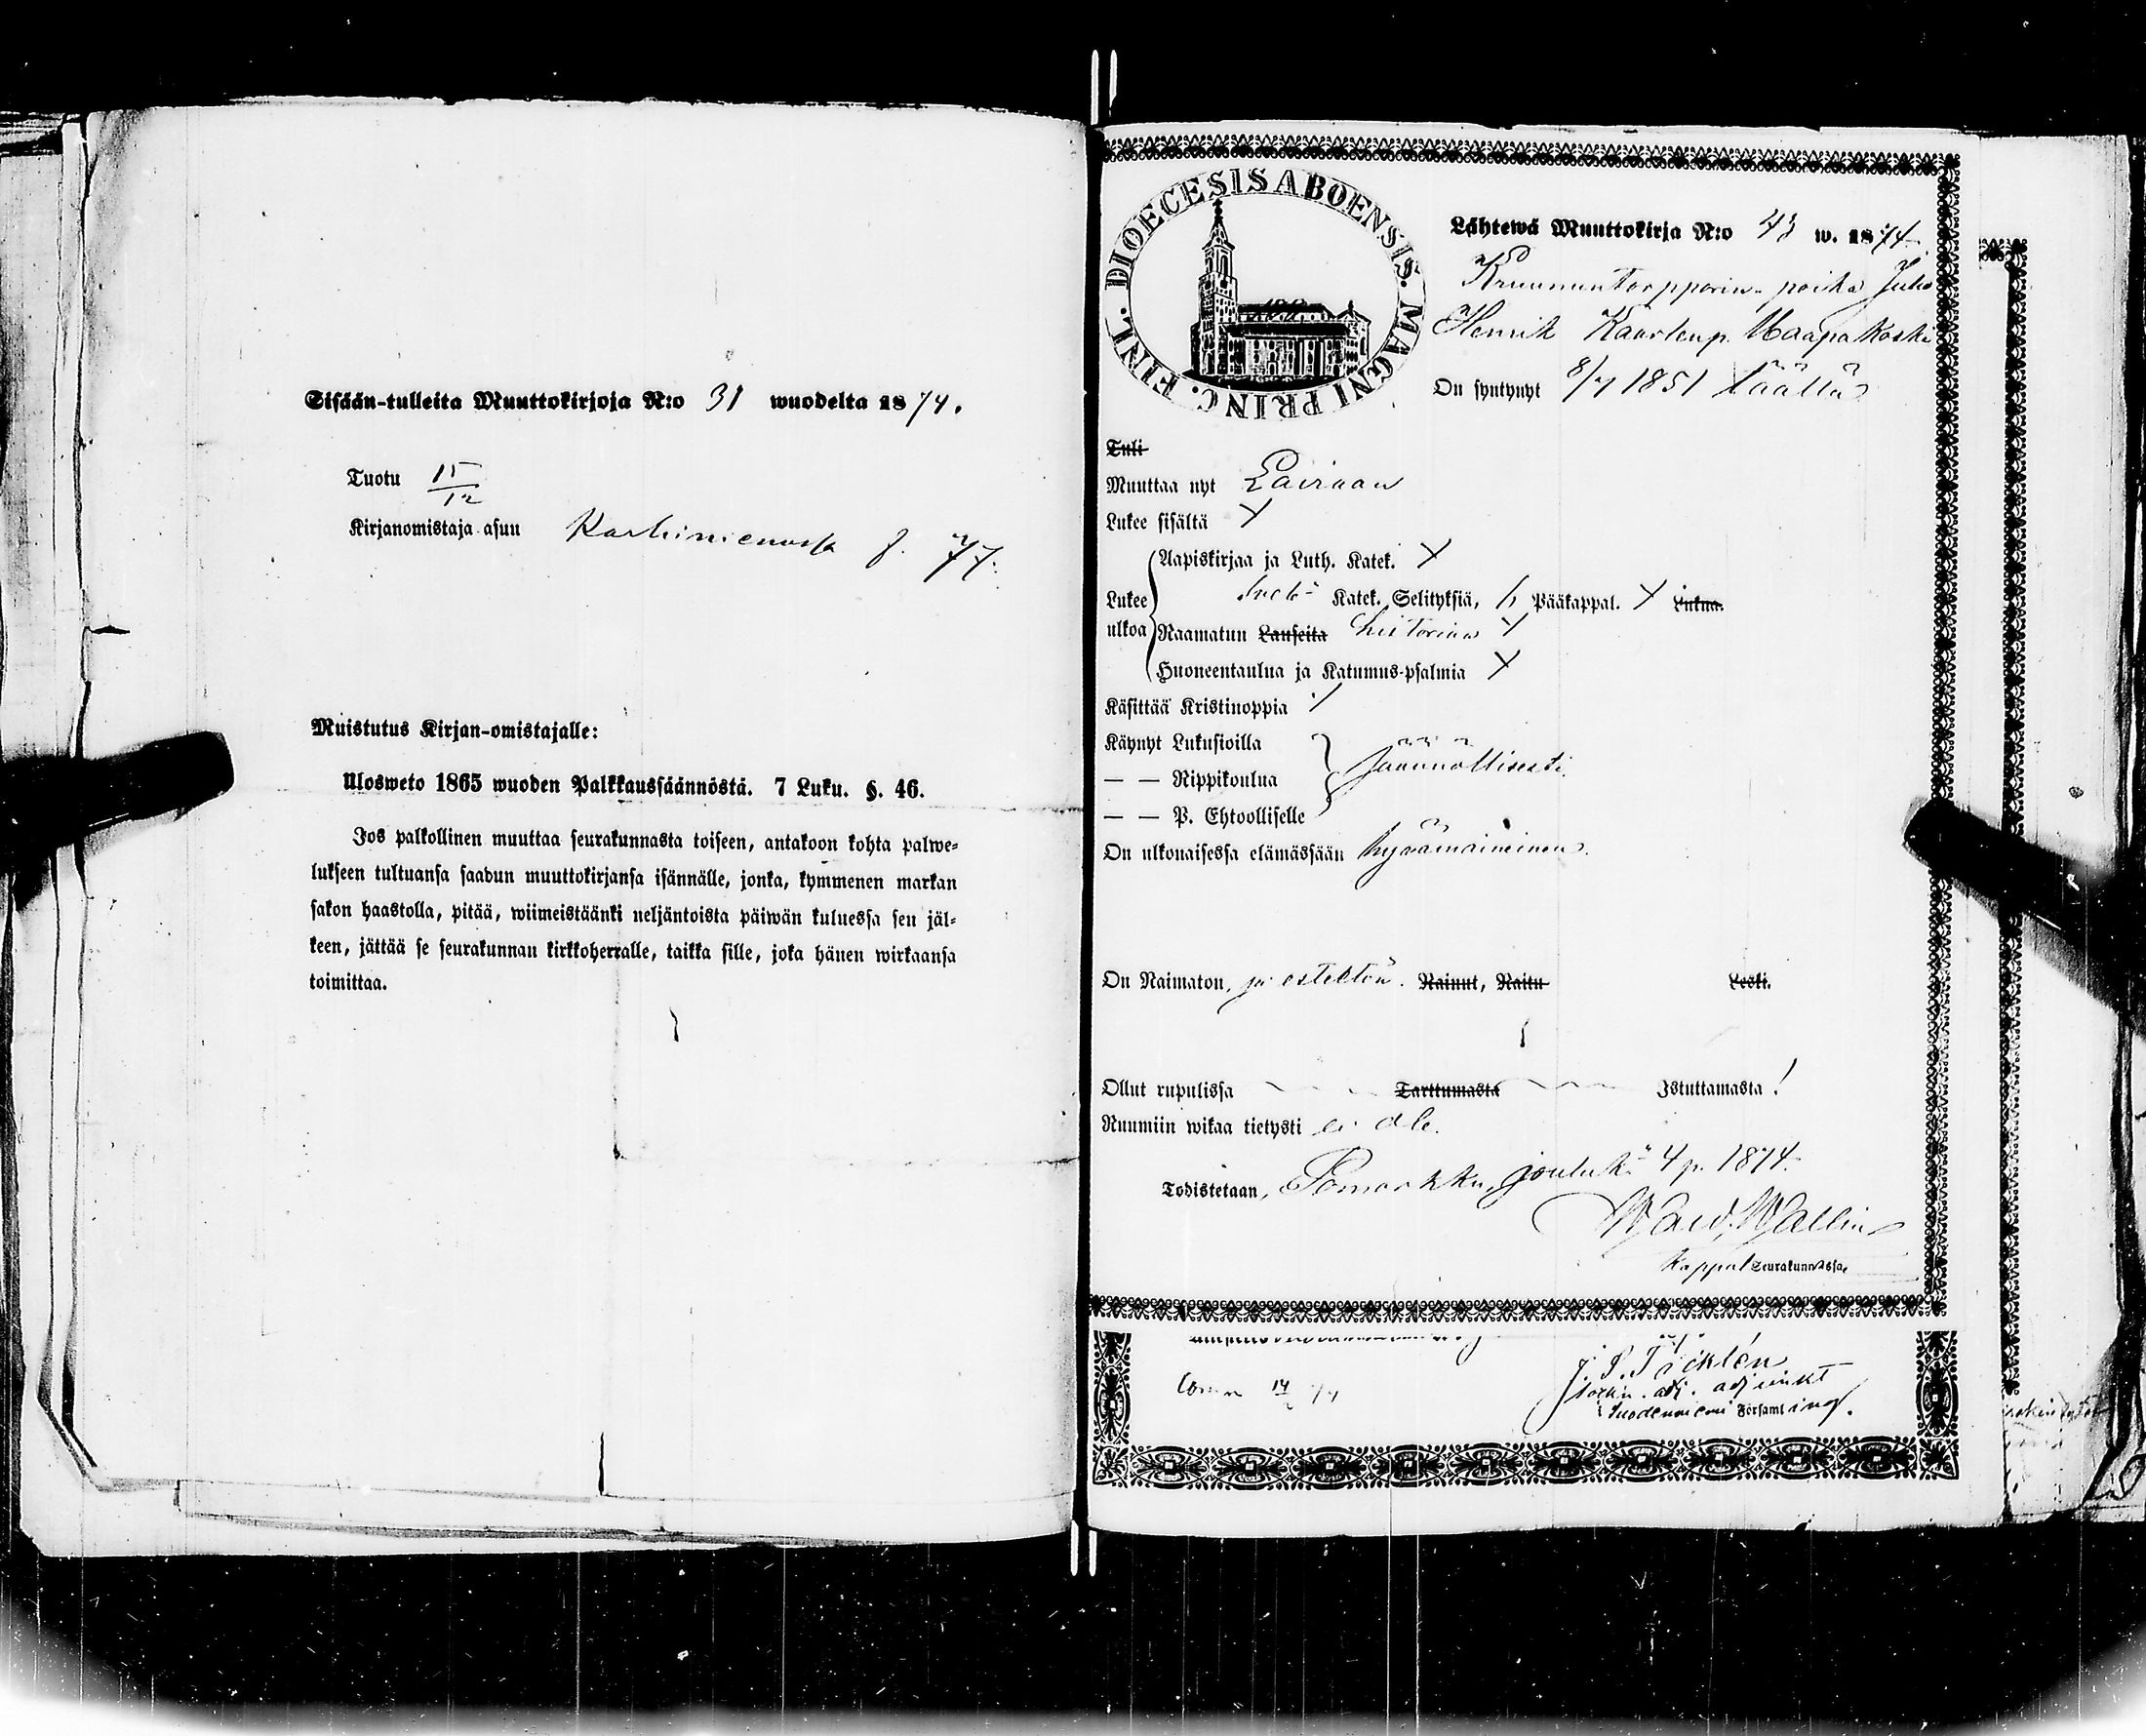 Sisään-tulleita Muuttokirjoja N:o 31 wuodelta 1874.
Tuotu 15/12
Kirjanomistaja asuu Karhiniemessä f. 77.
Muistutus Kirjan-omistajalle:
Ulosweto 1865 wuoden Palkkaussäännöstä. 7 Luku. §. 46.
Jos palkollinen muuttaa seurakunnasta toiseen, antakoon kohta palwe-
lukseen tultuansa saadun muuttokirjansa isännälle, jonka, kymmenen markan
sakon haastolla, pitää, wiimeistäänki neljäntoista päiwän kuluessa sen jäl-
keen, jättää se seurakunnan kirkkoherralle, taikka sille, joka hänen wirkaansa
toimittaa.
DIOECESIS ABOENSIS. MAGNI PRINC. FINL.
Lähtewä Muuttokirja N:o 43 w. 1874.
Kruununtorpparin poika Juho
Henrik Kaarlenp. Haapakoski
On syntynyt 8/7 1851 täällä
Tuli
Muuttaa nyt Lauriaan
Lukee sisältä X
Aapiskirjaa ja Luth. Katek. X
Lukee Sveb: Katek. Selityksiä, 6 Pääkappal. X Lukua.
ulkoa Raamatun Lauseita historiaa X
Huoneentaulua ja Katumus-psalmia X
Käsittää Kristinoppia
Käynyt Lukusioilla
— — Rippikoulua Säännöllisesti.
— — P. Ehtoolliselle
On ulkonaisessa elämässään hyväämaineinen.
On Naimaton, ja esteetön. Nainut, Naitu Leski.
Ollut rupulissa Tarttumasta Istuttamasta!
Ruumiin wikaa tietysti ei ole.
Todistetaan, Pomarkku, jouluk: 4 p. 1874.
Wald. Wallin
Kappal Seurakunnassa,
J. S. Täcklén
Sockn. adj. adjunkt
Suodenniemi Församling.